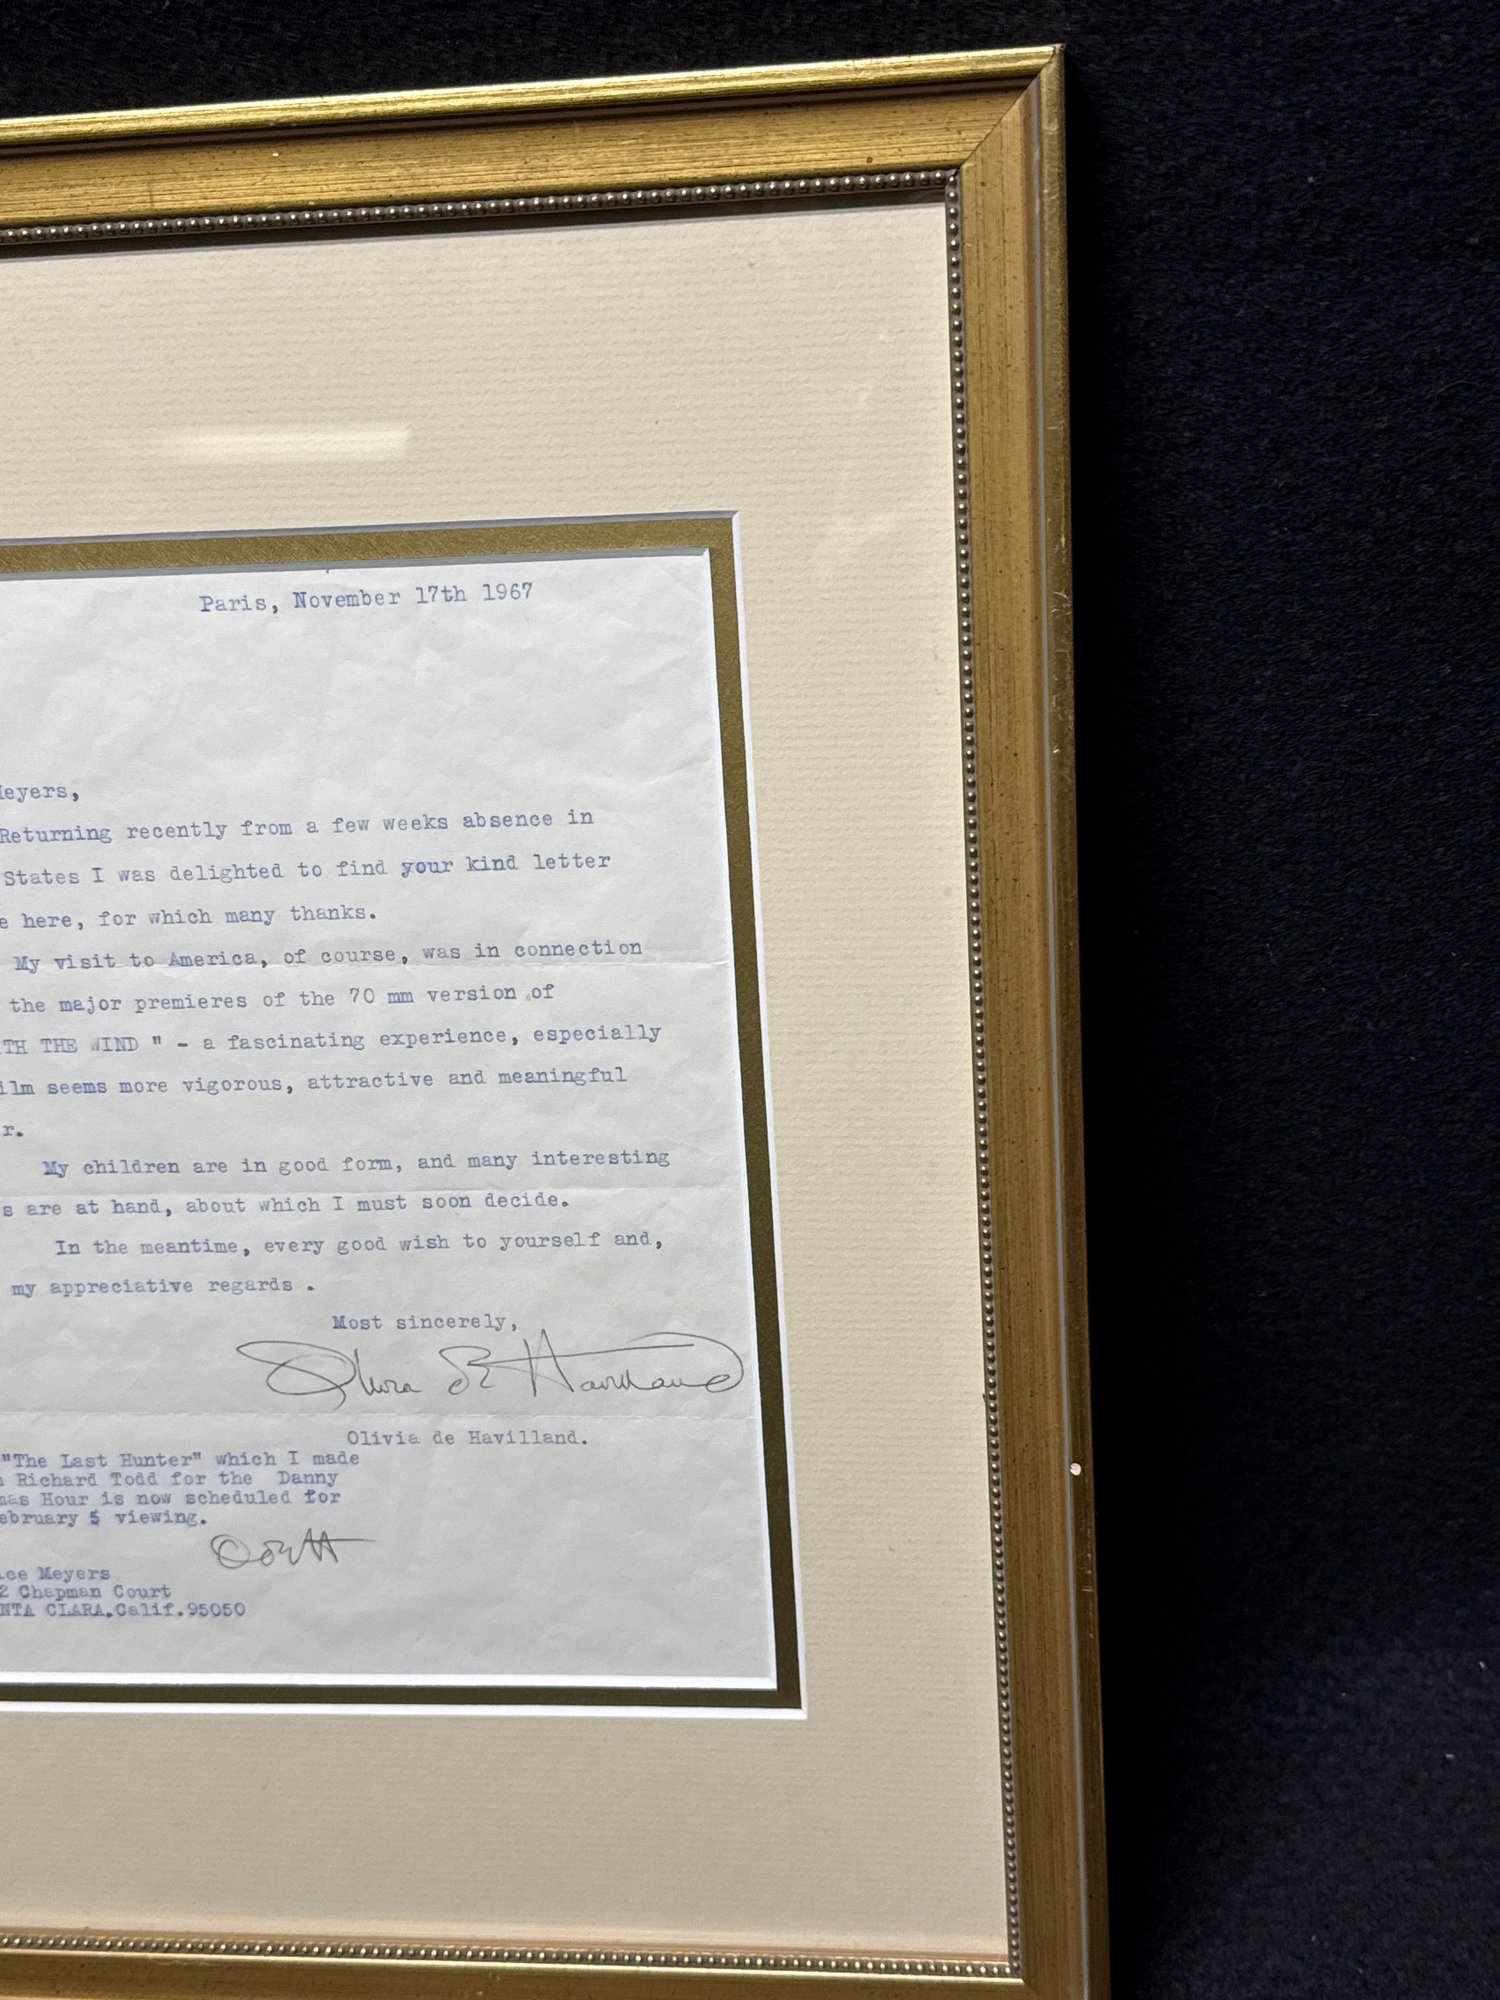 Paris, November 17th 1967
eyers,
Returning recently from a few weeks absence in
States I was delighted to find your kind letter
e here, for which many thanks.
My visit to America, of course, was in connection
the major premieres of the 70 mm version of
TH THE WIND " - a fascinating experience, especially
ilm seems more vigorous, attractive and meaningful
r.
My children are in good form, and many interesting
s are at hand, about which I must soon decide.
In the meantime, every good wish to yourself and,
my appreciative regards .
Most sincerely,
Olivia de Havilland
Olivia de Havilland.
"The Last Hunter" which I made
Richard Todd for the Danny
mas Hour is now scheduled for
ebruary 5 viewing.
OdeH
ce Meyers
2 Chapman Court
NTA CLARA.Calif.95050